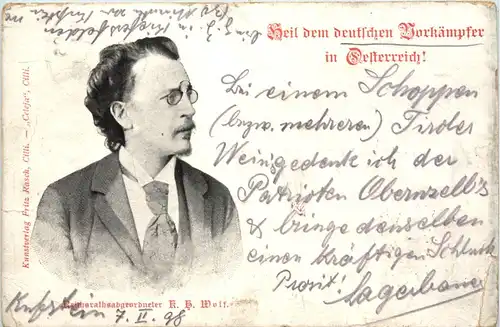 Heil dem deutschen Vorkämpfer
in Oesterreich!
Bei einem Schoppen
(bezw. mehreren) Tiroler
Wein gedenkt ich der
Patrioten Obernzell's
& bringe denselben
einen kräftigen Schluck
Prosit!
Kunstverlag Fritz Rasch, Cilli. — „Celeja“, Cilli.
Reichsrathsabgeordneter K. H. Wolf.
Kufstein 7. II. 98